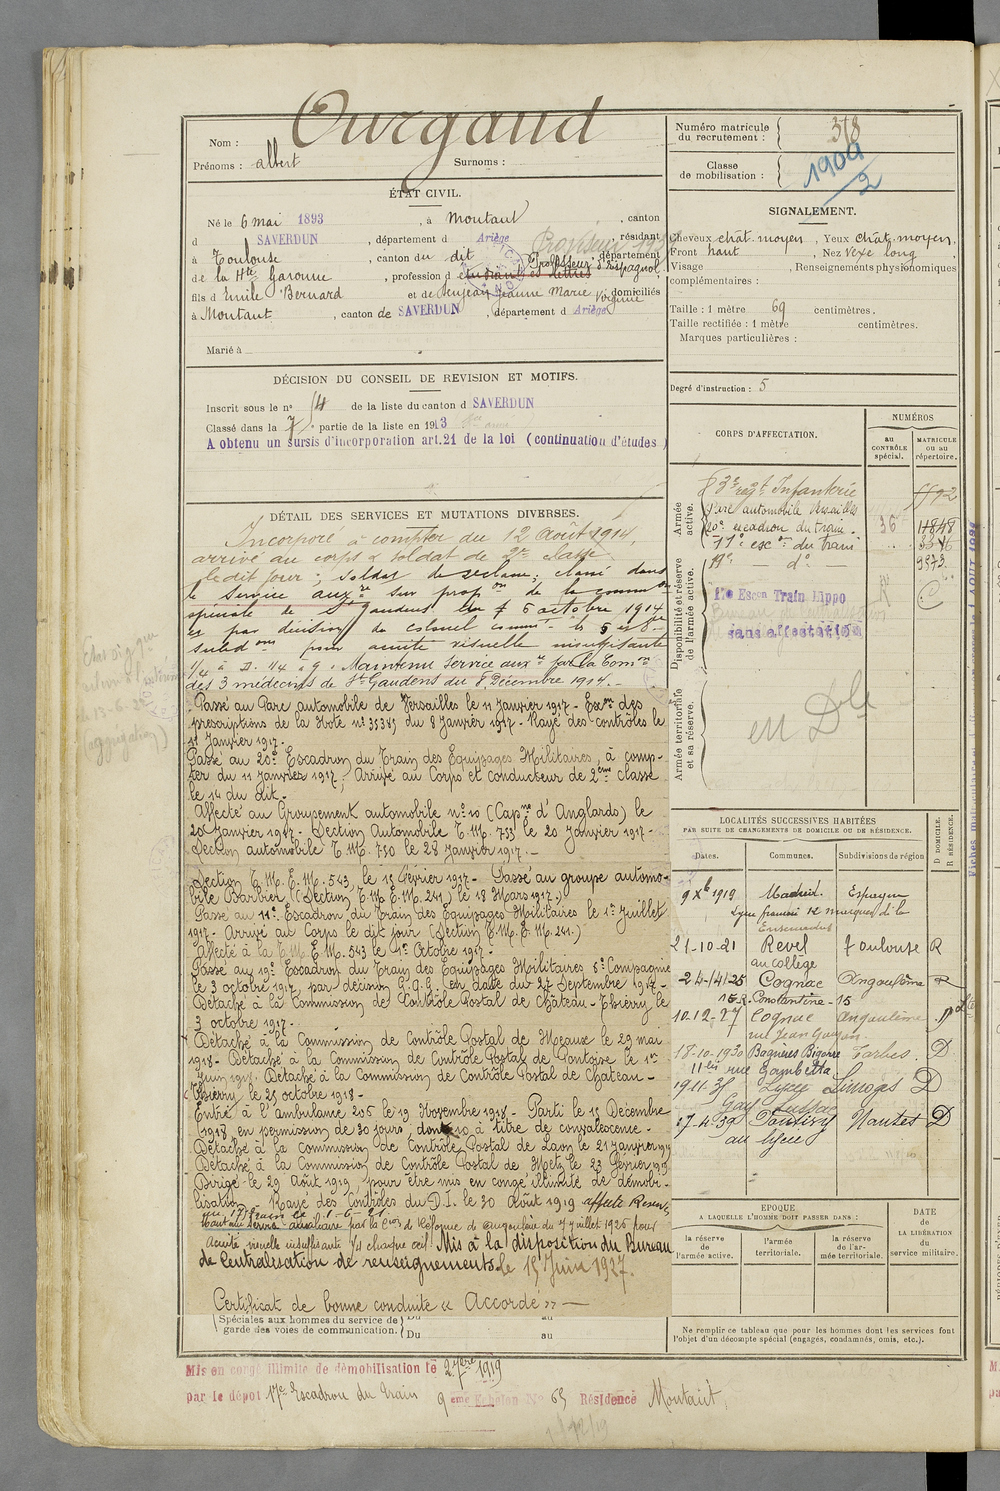 Nom : Ourgaud
Prénoms : albert Surnoms :
Numéro matricule du recrutement : 378
Classe de mobilisation : 1909/2
ÉTAT CIVIL.
Né le 6 mai 1893, à Montaut, canton
d SAVERDUN, département d Ariège, résidant
à Toulouse, canton du dit, département
de la Hte Garonne, profession d étudiant ès lettres Professeur d'Espagnol
fils d Emile Bernard et de Jeanne Marie Virginie domiciliés
à Montaut, canton de SAVERDUN, département d Ariège
Marié à
SIGNALEMENT.
Cheveux chât. moyen, Yeux chât. moyen,
Front haut, Nez Vexe long
Visage , Renseignements physionomiques
complémentaires :
Taille : 1 mètre 69 centimètres.
Taille rectifiée : 1 mètre centimètres.
Marques particulières :
Degré d'instruction : 5
DÉCISION DU CONSEIL DE REVISION ET MOTIFS.
Inscrit sous le n° 14 de la liste du canton d SAVERDUN
Classé dans la 7 partie de la liste en 1913
A obtenu un sursis d'incorporation art. 21 de la loi (continuation d'études)
DÉTAIL DES SERVICES ET MUTATIONS DIVERSES.
Incorporé à compter du 12 Août 1914,
arrivé au corps & soldat de 2e classe
le dit jour; classé dans
le service auxre sur propon de la common
spéciale de St Gaudens du 6 octobre 1914
pour acuité visuelle insuffisante
Maintenu Service auxre par la Comon
des 3 médecins de St Gaudens du 8 Décembre 1914.
Passé au Parc automobile de Versailles le 11 Janvier 1917 - Exon des
prescriptions de la Note n° 35343 du 8 Janvier 1917 - Rayé des contrôles le
11 Janvier 1917 -
Passé au 20e Escadron du Train des Equipages Militaires, à comp-
ter du 11 Janvier 1917, Arrivé au Corps et conducteur de 2ème classe
le 14 du dit -
Affecté au Groupement automobile n° 10 (Capne d'Anglards) le
20 Janvier 1917 - Section Automobile T.M. 733 le 20 Janvier 1917 -
Section automobile T.M. 730 le 28 Janvier 1917. -
Section E.M.E.M. 543, le 15 Février 1917 - Passé au groupe automo-
bile Barbier, (Section E.M.E.M. 241) le 18 Mars 1917.
Passé au 11e Escadron du Train des Equipages Militaires le 1er Juillet
1917 - Arrivé au Corps le dit jour (Section E.M.E.M. 241.)
Affecté à la E.M.E.M. 543 le 1er Octobre 1917 -
Passé au 19e Escadron du Train des Equipages Militaires 5e Compagnie
le 3 octobre 1917 par décision G.Q.G. en date du 27 Septembre 1917 -
Détaché à la Commission de Contrôle Postal de Château-Thierry le
3 octobre 1917 -
Détaché à la Commission de Contrôle Postal de Meaux le 29 mai
1918 - Détaché à la Commission de Contrôle Postal de Pontoise le 1er
Juin 1918. Détaché à la Commission de Contrôle Postal de Château-
Thierry le 25 octobre 1918 -
Entré à l'ambulance 205 le 19 Novembre 1918 - Parti le 15 Décembre
1918 en permission de 30 jours, dont 10 à titre de convalescence -
Détaché à la Commission de Contrôle Postal de Laon le 21 janvier 1919
Détaché à la Commission de Contrôle Postal de Metz le 23 Février 1919
Dirigé le 29 Août 1919 pour être mis en congé illimité de démobi-
lisation Rayé des Contrôles du D.I. le 30 Août 1919 affecté Reserve
au 17e train le 1-6-21.
Maint au Service auxiliaire par la Con de Réforme de Angoulême du 7 juillet 1926 pour
acuité visuelle insuffisante 1/4 chaque œil. Mis à la disposition du Bureau
de Centralisation de renseignements le 15 Juin 1927.
Certificat de bonne conduite « Accordé » —
Spéciales aux hommes du service de garde des voies de communication.
Du au
Du au
CORPS D'AFFECTATION.
NUMÉROS
au CONTRÔLE spécial.
MATRICULE ou au répertoire.
Armée active.
83e régt Infanterie
Parc automobile Versailles
20e escadron du train. 36 11848
11e escon du train 3346
19e — do — 9373
Disponibilité et réserve de l'armée active.
17e Escon Train Hippo
sans affectation
Armée territoriale et sa réserve.
en Dle
LOCALITÉS SUCCESSIVES HABITÉES
PAR SUITE DE CHANGEMENTS DE DOMICILE OU DE RÉSIDENCE.
Dates. Communes. Subdivisions de région D DOMICILE. R RÉSIDENCE.
9 Xb 1919 Madrid Espagne
Lycée français 12 marques de la Ensenada
21-10-21 Revel Toulouse R
au collège
24-141-25 Cognac Angoulême R
15 R. Constantine - 15
10-12-27 Cognac Angoulême D
rue Jean
18-10-1930 Bagnères Bigorre Tarbes D
11 bis rue Gambetta
19.11.35 Lycée Limoges D
Gay Lussac
17-4-39 Pontivy Nantes D
au lycée
EPOQUE
A LAQUELLE L'HOMME DOIT PASSER DANS :
la réserve de l'armée active.
l'armée territoriale.
la réserve de l'armée territoriale.
DATE de LA LIBÉRATION du service militaire.
Ne remplir ce tableau que pour les hommes dont les services font
l'objet d'un décompte spécial (engagés, condamnés, omis, etc.).
Mis en congé illimité de démobilisation le 2 7bre 1919
par le dépôt 17e Escadron du Train 9eme Echelon N° 65 Résidence Montaut